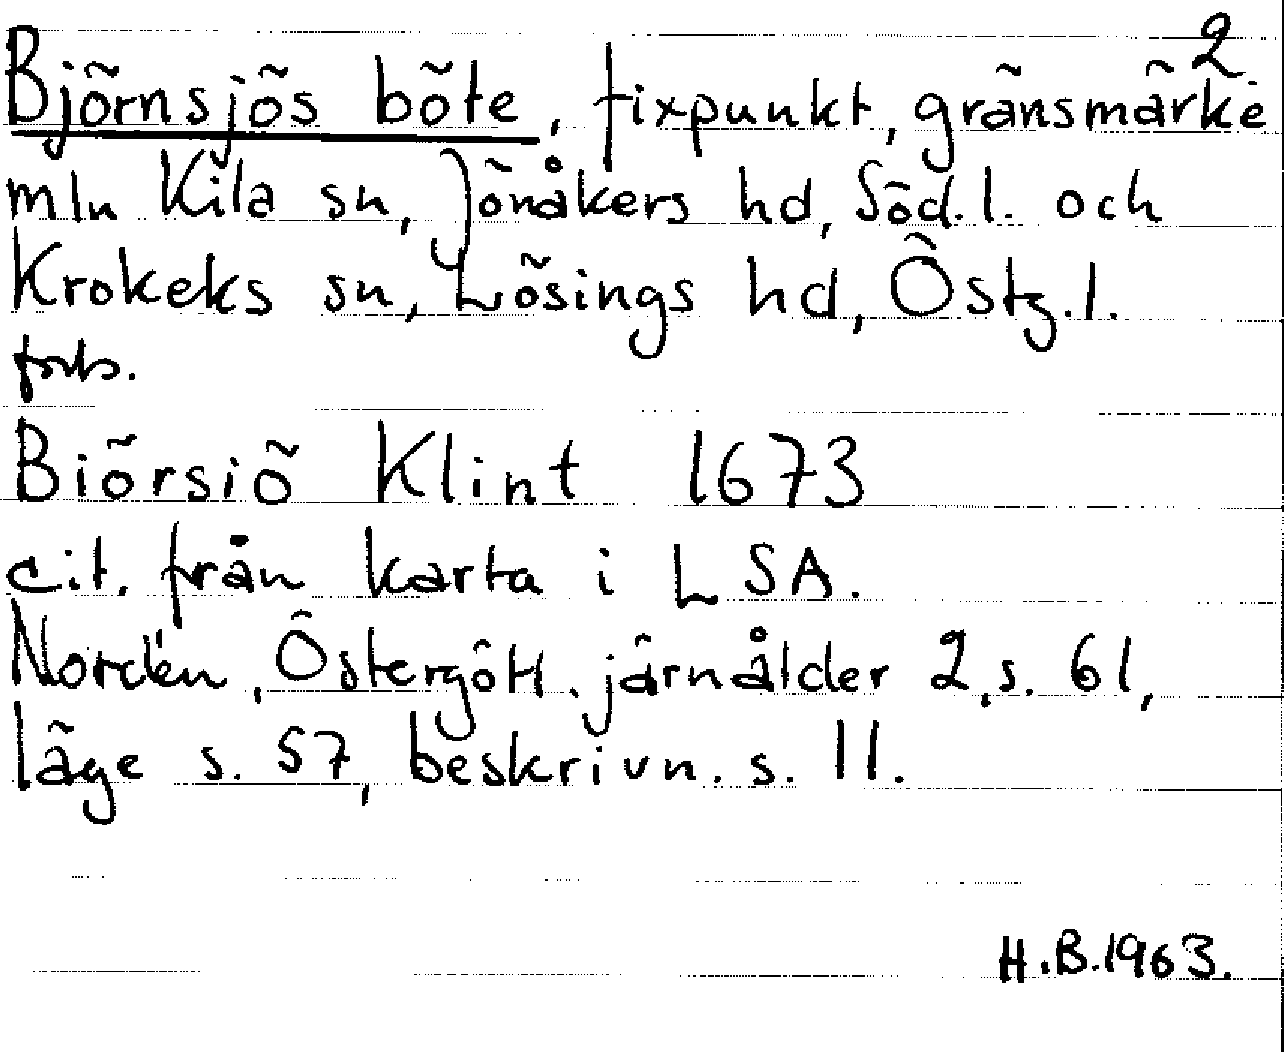 2
Björnsjös böte, fixpunkt, gränsmärke
mln Kila sn, Jönåkers hd, Söd.l. och
Krokeks sn, Lösings hd, Östg.l.
forts.
Biörsiö Klint 1673
cit. från karta i LSA.
Nordén, Östergötl. järnålder 2, s. 61,
läge s. 57, beskrivn. s. 11.
H.B.1963.